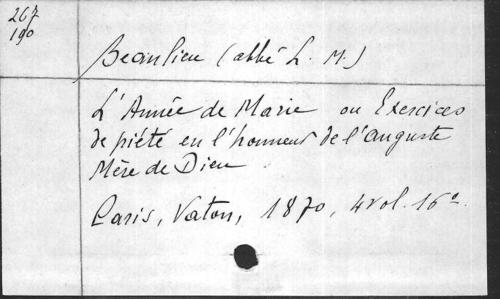 267
190
Beaulieu (abbé L. M.)
L'Année de Marie ou Exercices
de piété en l'honneur de l'auguste
Mère de Dieu.
Paris, Vaton, 1870, 4 vol. 16º.